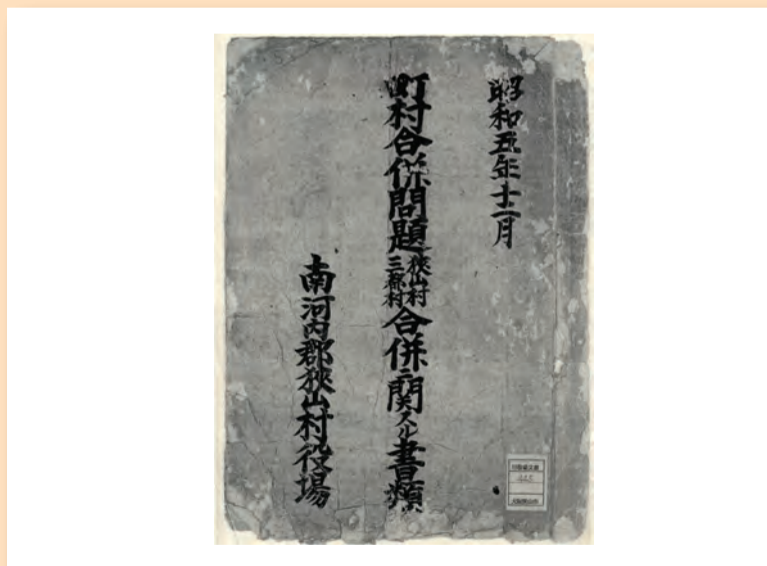 昭和五年十二月
町村合併問題
狭山村
三都村
合併ニ関スル書類
南河内郡狭山村役場